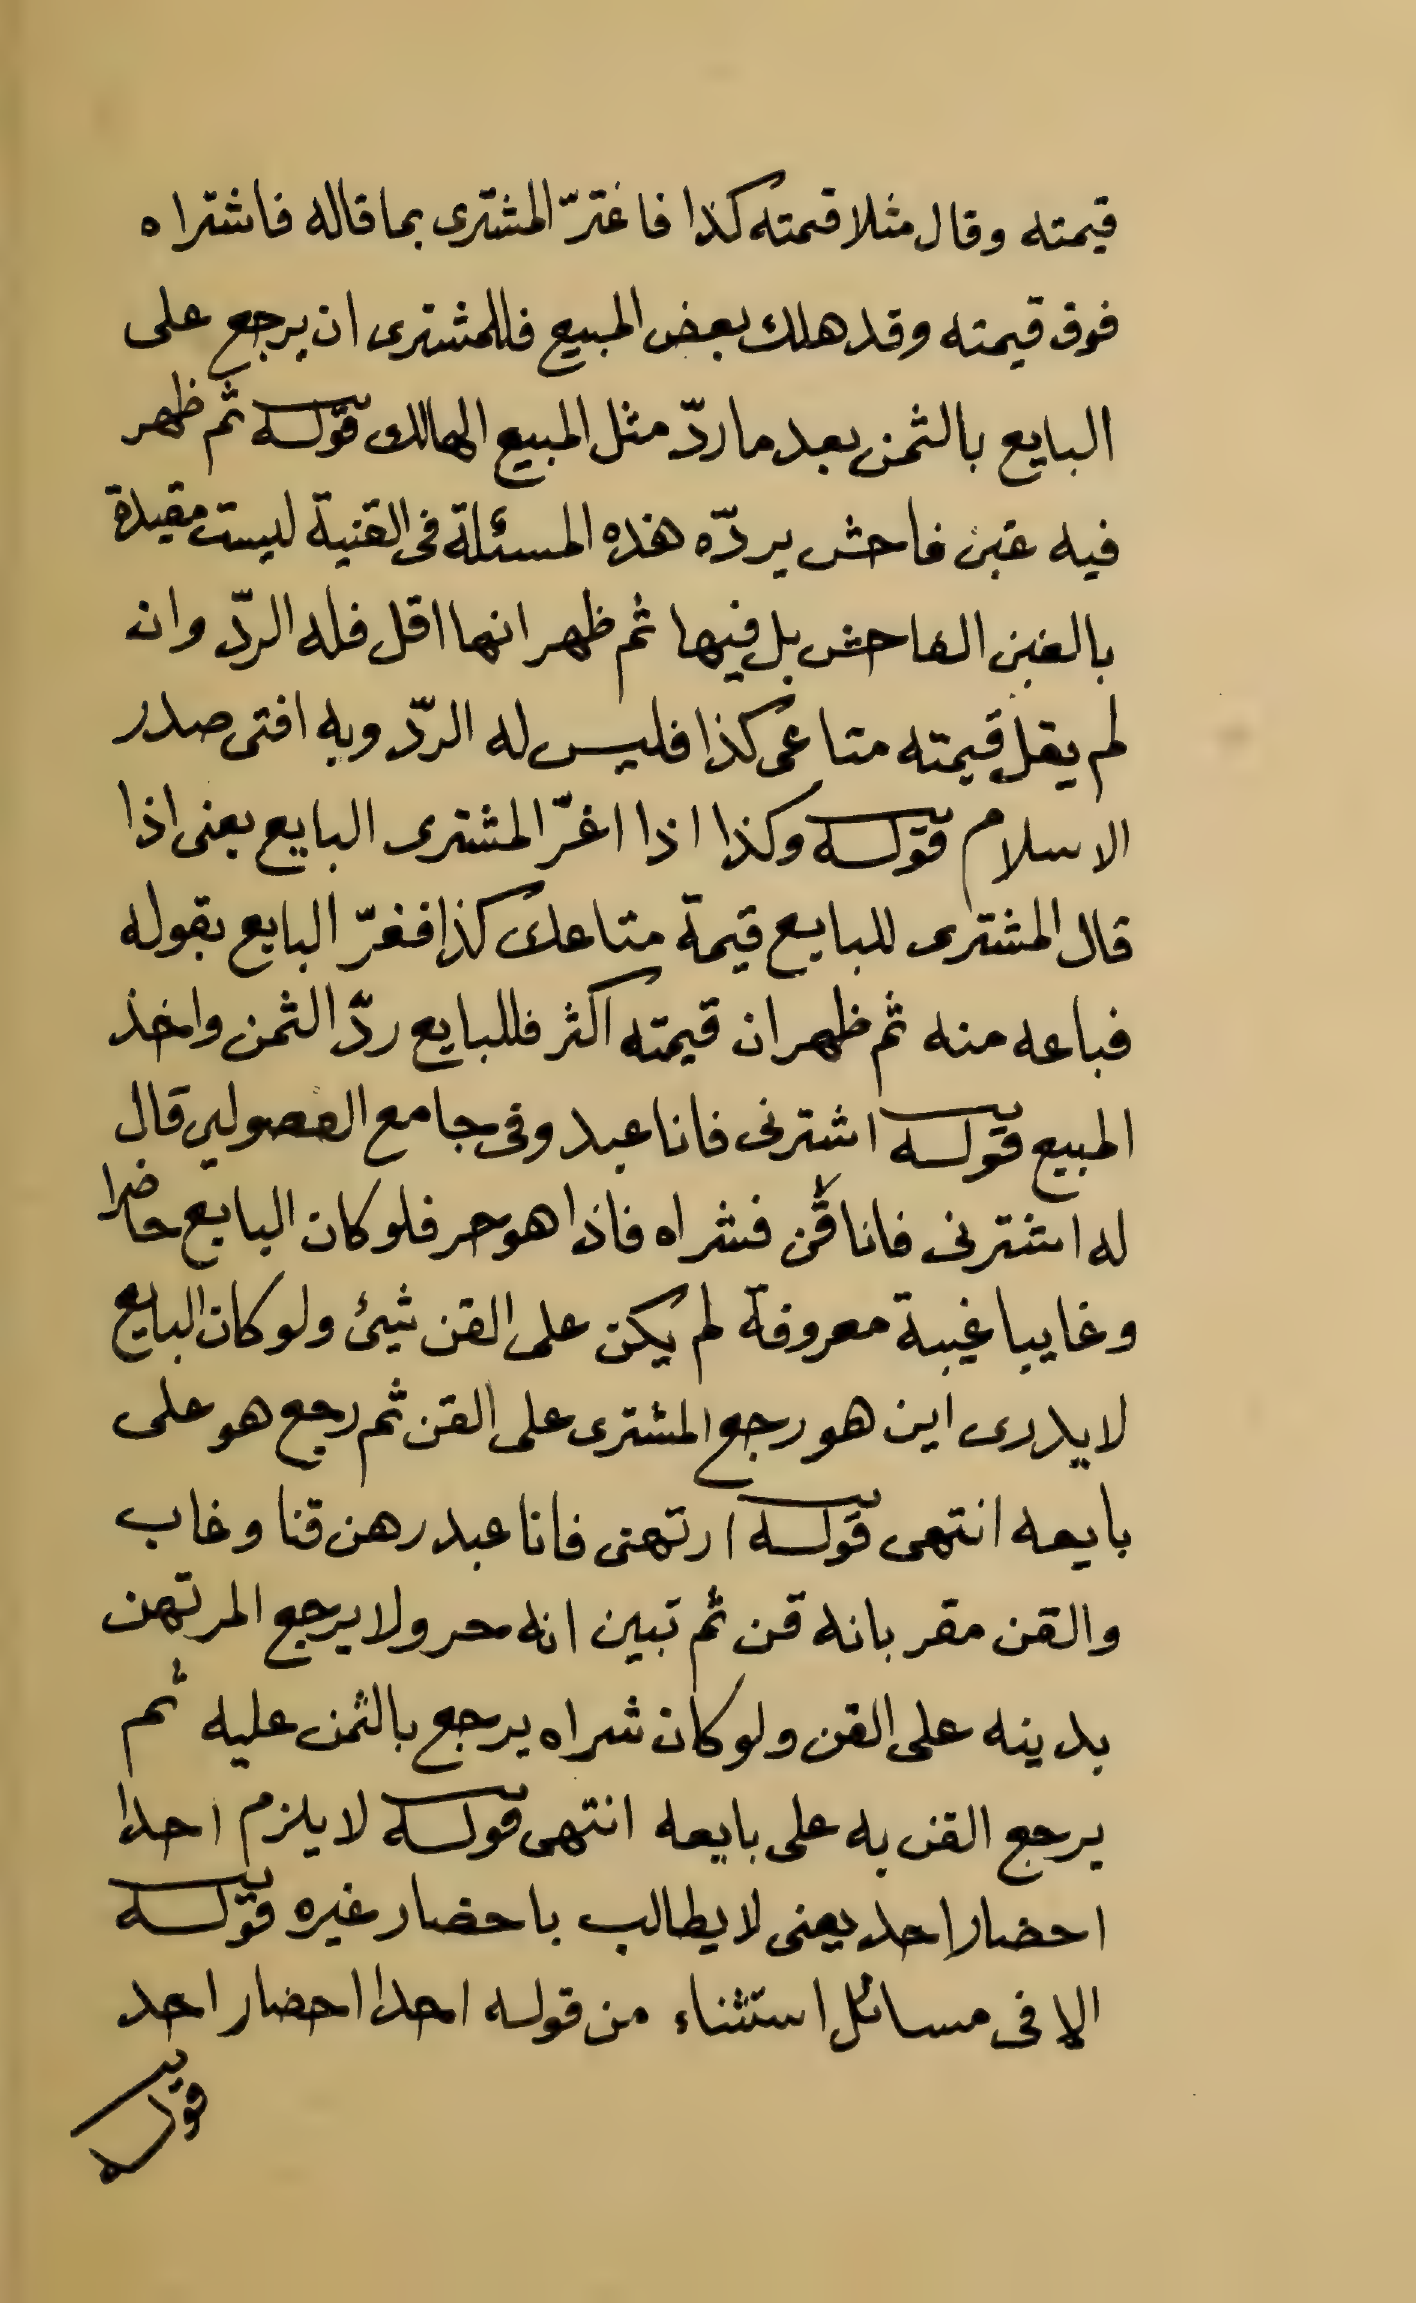 قيمته وقال مثلا قيمته كذا فاغترّ المشترى بما قاله فاشتراه
فوق قيمته وقد هلك بعض المبيع فللمشترى ان يرجع على
البايع بالثمن بعد ما ردّ مثل المبيع الهالك قوله ثم ظهر
فيه غبن فاحش يردّه هذه المسئلة فى القنية ليست مقيدة
بالغبن الفاحش بل فيها ثم ظهر انها اقل فله الردّ وان
لم يقل قيمته متاعى كذا فليس له الردّ وبه افتى صدر
الاسلام قوله وكذا اذا اغرّ المشترى البايع يعنى اذا
قال المشترى للبايع قيمة متاعك كذا فغرّ البايع بقوله
فباعه منه ثم ظهر ان قيمته اكثر فللبايع ردّ الثمن واخذ
المبيع قوله اشترنى فانا عبد وفى جامع الفصولين قال
له اشترنى فانا قن فشراه فاذا هو حر فلو كان البايع حاضرا
وغايبا غيبة معروفة لم يكن على القن شيئ ولو كان البايع
لا يدرى اين هو رجع المشترى على القن ثم رجع هو على
بايعه انتهى قوله ارتهنى فانا عبد رهن قنا وغاب
والقن مقر بانه قن ثم تبين انه حر ولا يرجع المرتهن
بدينه على القن ولو كان شراه يرجع بالثمن عليه ثم
يرجع القن به على بايعه انتهى قوله لا يلزم احدا
احضار احد يعنى لا يطالب باحضار غيره قوله
الا فى مسائل استثناء من قوله احدا احضار احد
قوله